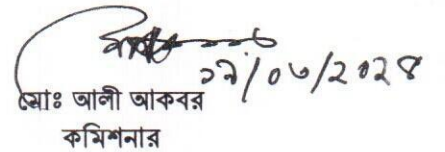 ২৭/০৩/২০২৪
মোঃ আলী আকবর
কমিশনার